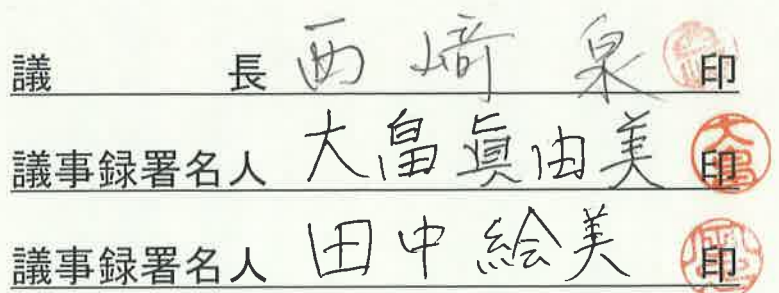 議長 西﨑 泉 印
議事録署名人 大畠眞由美 印
議事録署名人 田中絵美 印